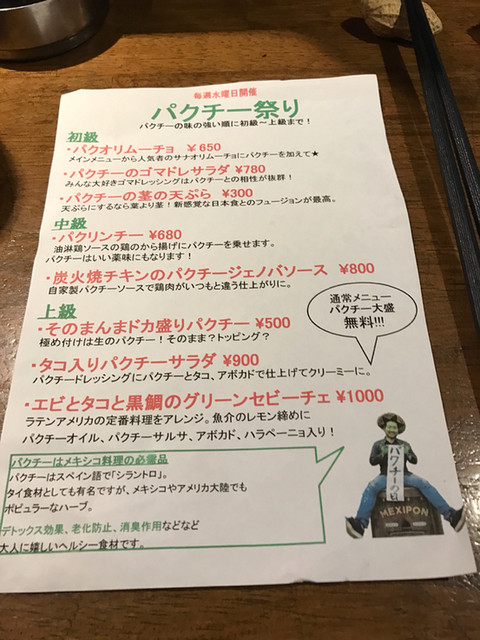 毎週水曜日開催
パクチー祭り
パクチーの味の強い順に初級～上級まで！
初級
・パクオリムーチョ ￥650
メインメニューから人気者のサナオリムーチョにパクチーを加えて★
・パクチーのゴマドレサラダ ¥780
みんな大好きゴマドレッシングはパクチーとの相性が抜群！
・パクチーの茎の天ぷら ¥300
天ぷらにするなら葉より茎！新感覚な日本食とのフュージョンが最高。
中級
・パクリンチー ¥680
油淋鶏ソースの鶏のから揚げにパクチーを乗せます。
パクチーはいい薬味にもなります！
・炭火焼チキンのパクチージェノバソース ¥800
自家製パクチーソースで鶏肉がいつもと違う仕上がりに。
上級
・そのまんまドカ盛りパクチー ¥500
極め付けは生のパクチー！そのまま？トッピング？
・タコ入りパクチーサラダ ¥900
パクチードレッシングにパクチーとタコ、アボカドで仕上げてクリーミーに。
・エビとタコと黒鯛のグリーンセビーチェ ¥1000
ラテンアメリカの定番料理をアレンジ。魚介のレモン締めに
パクチーオイル、パクチーサルサ、アボカド、ハラペーニョ入り！
通常メニュー
パクチー大盛
無料!!!
パクチーはメキシコ料理の必需品
パクチーはスペイン語で「シラントロ」。
タイ食材としても有名ですが、メキシコやアメリカ大陸でも
ポピュラーなハーブ。
デトックス効果、老化防止、消臭作用などなど
大人に嬉しいヘルシー食材です。
パクチーの日
MEXIPON